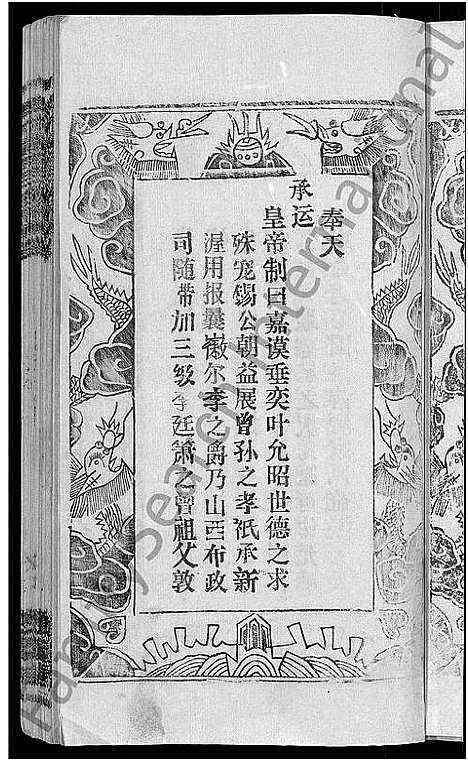 奉天
承运
皇帝制曰嘉谟垂奕叶允昭世德之求
殊宠锡公朝益展曾孙之孝祇承新
渥用报曩徽尔李之爵乃山西布政
司随带加三级李廷箫之曾祖父敦